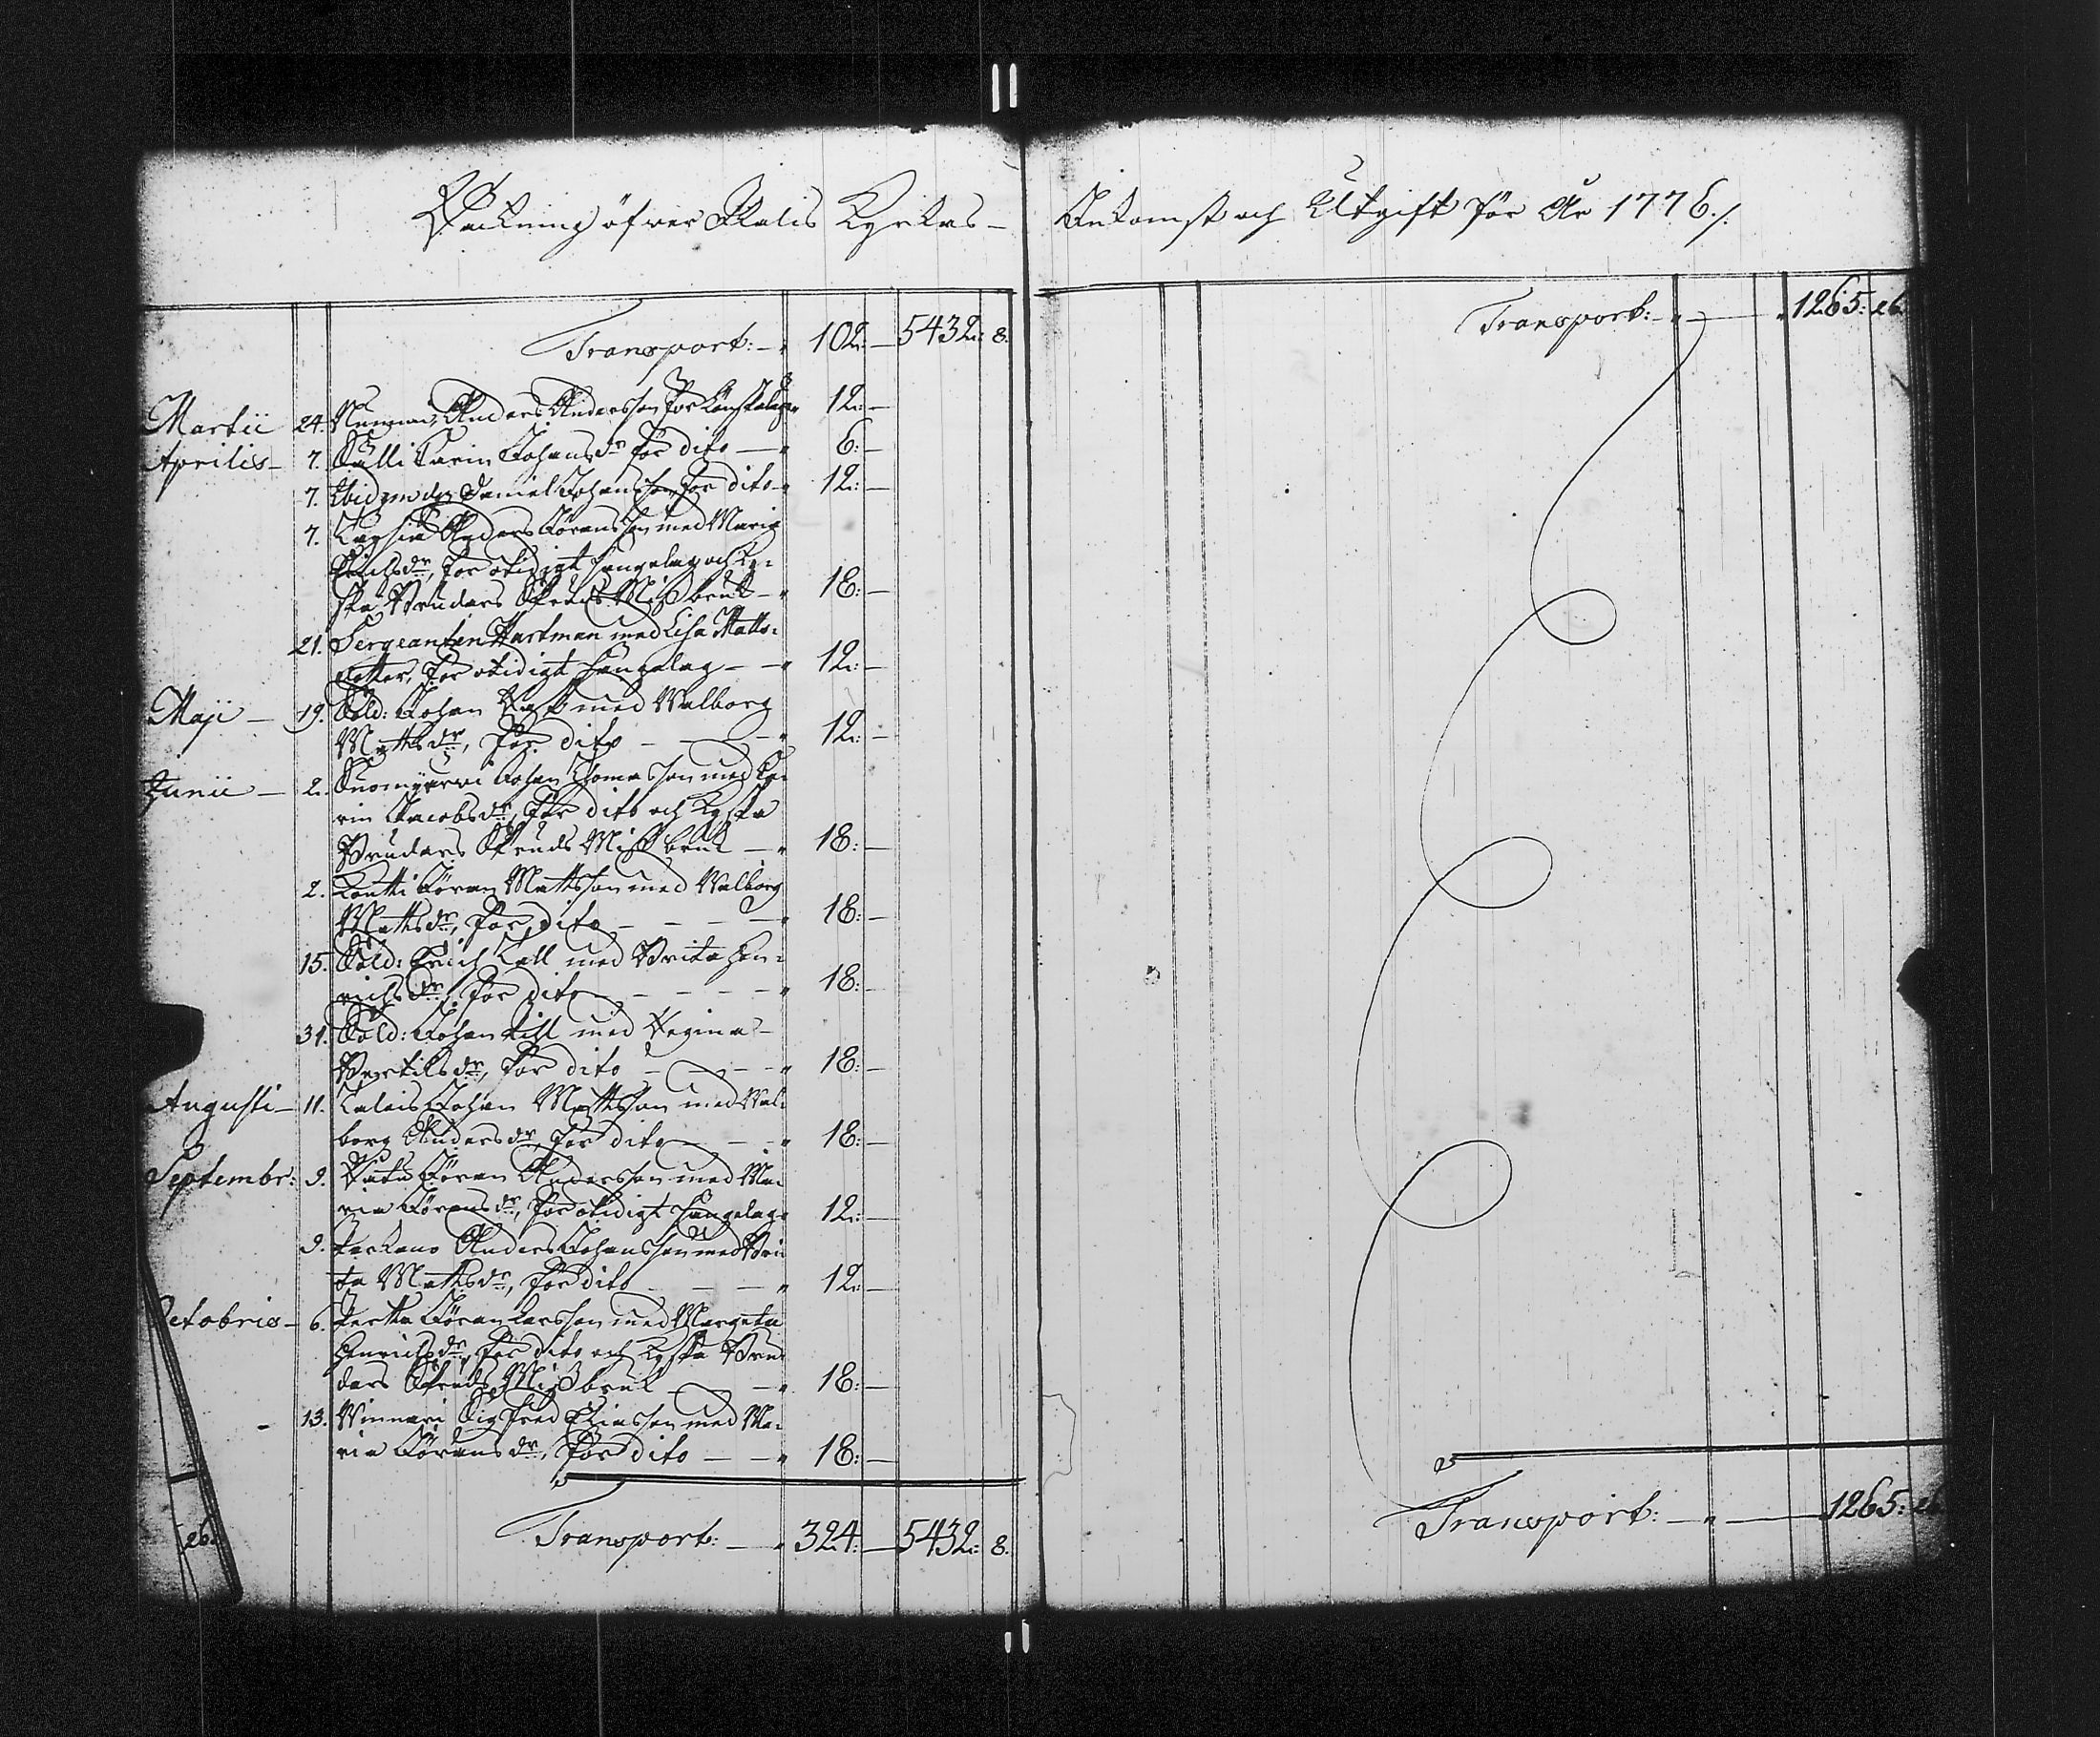 Räkning öfver Kalis Kyrkas - Inkomst och Utgift för År 1776./.
Transport: - " 102: - 5432: 8.
Martii 24. Anders Andersson för Lönskaläge " 12: -
Aprilis - 7. Carin Johans dr för dito - " 6: -
7. Daniel Johansson för dito " 12: -
7. Anders Göransson med Maria
Erichs dr, för otidigt sängelag och Ky-
ska Brudars Skruds Missbruk - " 18: -
21. Sergeanten Hartman med Lisa Matts-
dotter, för otidigt sängelag - " 12: -
Maji - 19. Sold: Johan med Walborg
Matts dr, för dito - - - " 12: -
Junii - 2. Johan Thomasson med Ca-
rin Jacobs dr, för dito och Kyska
Brudars Skruds Missbruk - " 18: -
2. Göran Mattsson med Walborg
Matts dr, för dito - - - " 18: -
15. Sold: Erich Tall med Brita Hen-
richs dr, för dito - - - - " 18: -
31. Sold: Johan med Regina
Bertils dr, för dito - - - - " 18: -
Augusti - 11. Johan Mattsson med Wal-
borg Anders dr, för dito - - " 18: -
Septembr: 9. Göran Andersson med Ma-
ria Görans dr, för otidigt sängelag " 12: -
9. Anders Johansson med Bri-
ta Matts dr, för dito - - - " 12: -
Octobris - 6. Perttu Göran Larsson med Margeta
Henrichs dr, för dito och Kyska Bru-
dars Skruds Missbruk - " 18: -
13. Winnari Sigfred Eliasson med Ma-
ria Görans dr, för dito - - " 18: -
Transport: - " 324: - 5432: 8.
26.
Transport: - " - " 1265: 26.
Transport: - " - 1265: 26